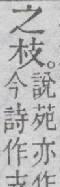 之枝。
說苑亦作
今詩作支